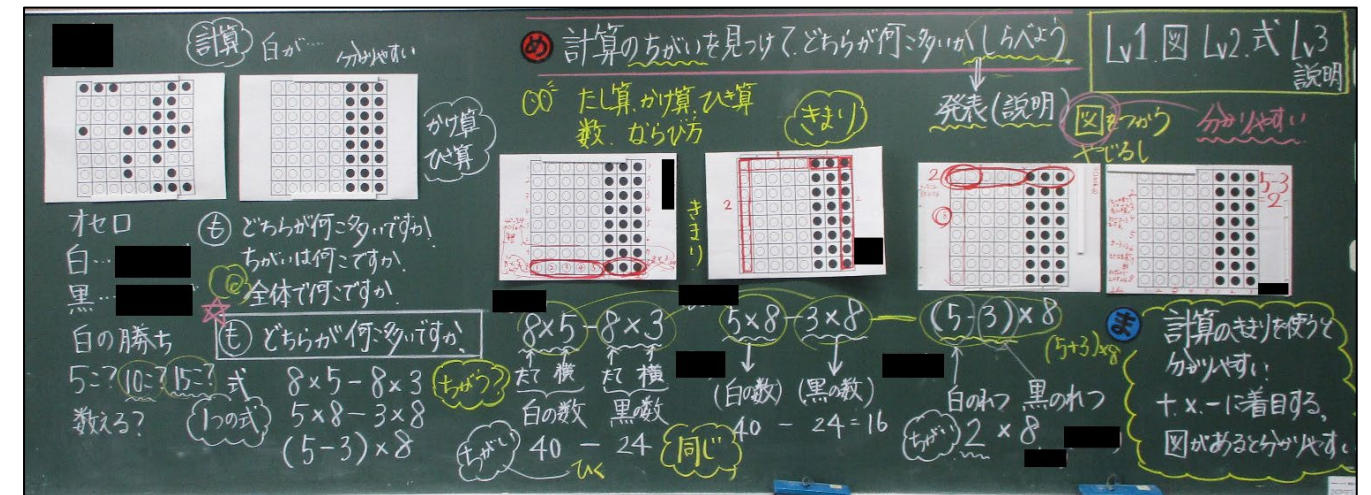 計算 白が… 分かりやすい
かけ算
ひき算
オセロ
白…
黒…
白の勝ち
5こ? 10こ? 15こ?
数える?
も どちらが何こ多いですか。
ちがいは何こですか。
全体で何こですか。
も どちらが何こ多いですか。
式 8×5-8×3
1つの式 5×8-3×8
(5-3)×8
め 計算のちがいを見つけて、どちらが何こ多いか しらべよう
たし算、かけ算、ひき算
数、ならび方
きまり
発表(説明)
図をつかう
やじるし
分かりやすい
Lv1.図 Lv2.式 Lv3
説明
2
きまり
2
2
5-3
=2
8×5-8×3
ちがう?
たて 横 たて 横
白の数 黒の数
ちがい 40 - 24
ひく
同じ
5×8-3×8
(白の数) (黒の数)
40 - 24=16
(5-3)×8
(5+3)×8
白のれつ 黒のれつ
ちがい 2×8
ま 計算のきまりを使うと
分かりやすい
+.×.-に着目する。
図があると分かりやすい